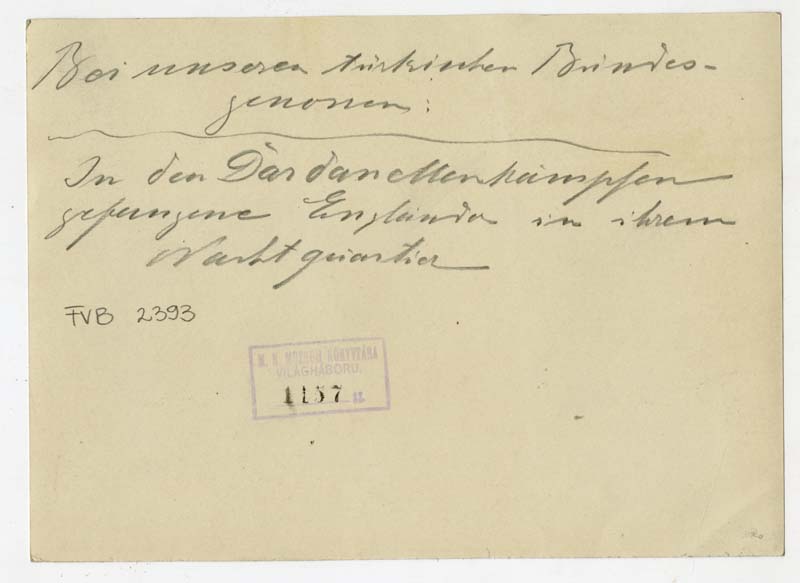 Bei unseren türkischen Bundes-
genossen:
In den Dardanellenkämpfen
gefangene Engländer in ihrem
Nachtquartier
FVB 2393
M. N. MUZEUM KÖNYVTÁRA
VILÁGHÁBORU.
1157 sz.